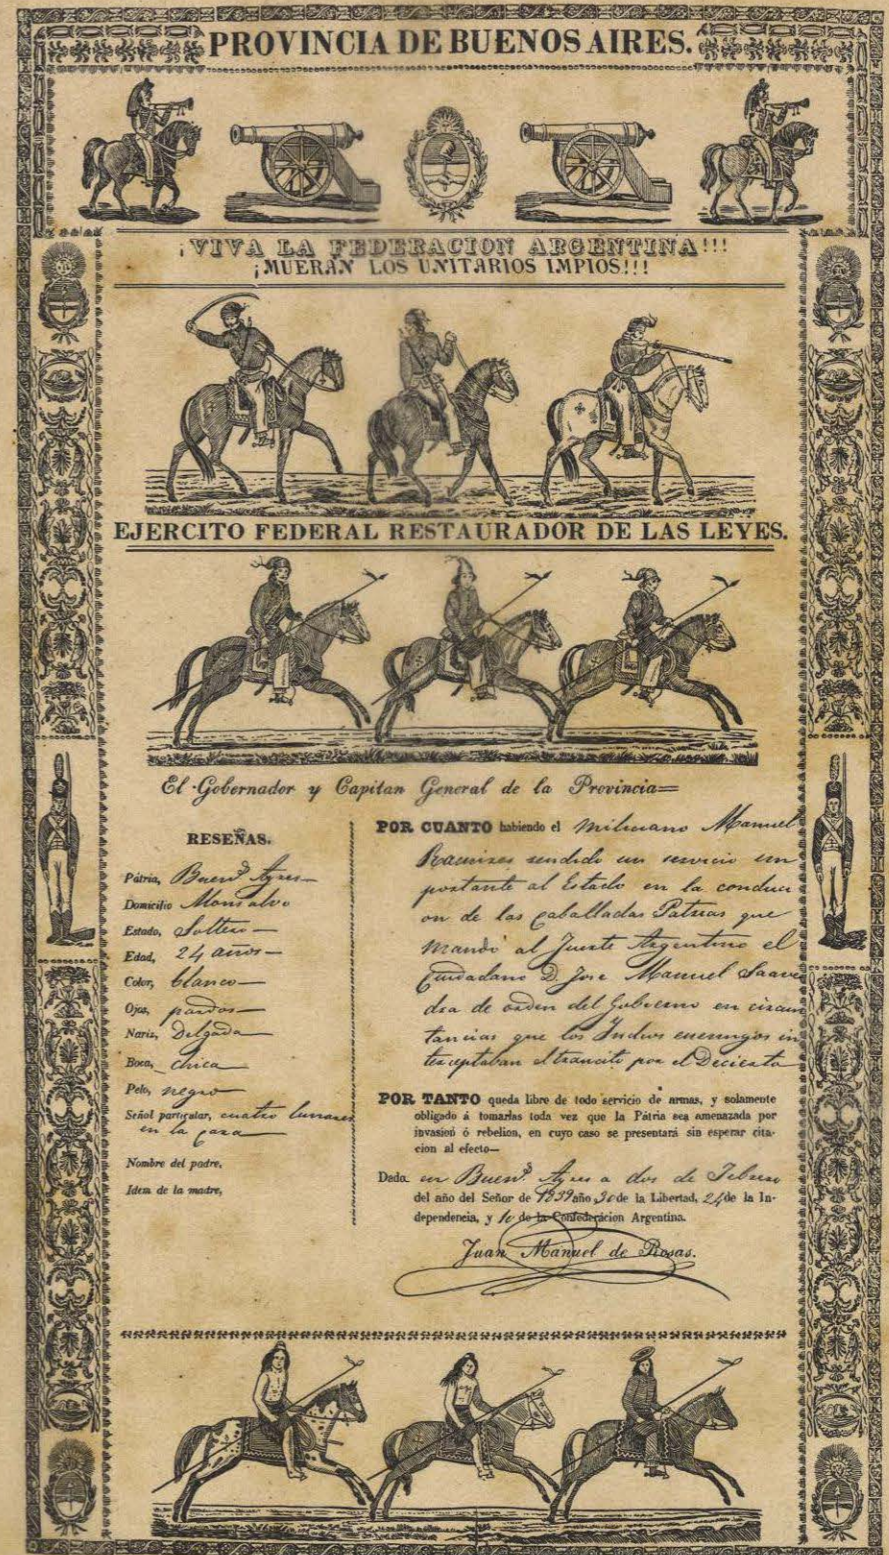 PROVINCIA DE BUENOS AIRES.
¡VIVA LA FEDERACION ARGENTINA!!!
¡MUERAN LOS UNITARIOS IMPIOS!!!
EJERCITO FEDERAL RESTAURADOR DE LAS LEYES.
El Gobernador y Capitan General de la Provincia=
RESEÑAS.
Pátria, Buenˢ Ayres
Domicilio Monsalvo
Estado, Soltero
Edad, 24 años
Color, blanco
Ojos, pardos
Nariz, Delgada
Boca, chica
Pelo, negro
Señal particular, cuatro lunares
en la cara
Nombre del padre,
Idem de la madre,
POR CUANTO habiendo el Miliciano Manuel
Ramires rendido un servicio im
portante al Estado en la conduci
on de las caballadas Patrias que
mandó al Fuerte Argentino el
Ciudadano D. Jose Manuel Saave
dra de orden del Gobierno en circuns
tancias que los Indios enemigos in
terceptaban el transito por el Decierto
POR TANTO queda libre de todo servicio de armas, y solamente
obligado á tomarlas toda vez que la Pátria sea amenazada por
invasion ó rebelion, en cuyo caso se presentará sin esperar cita-
cion al efecto—
Dada en Buenˢ Ayres a dos de Febrero
del año del Señor de 1839 año 30 de la Libertad, 24 de la In-
dependencia, y 10 de la Confederacion Argentina.
Juan Manuel de Rosas.